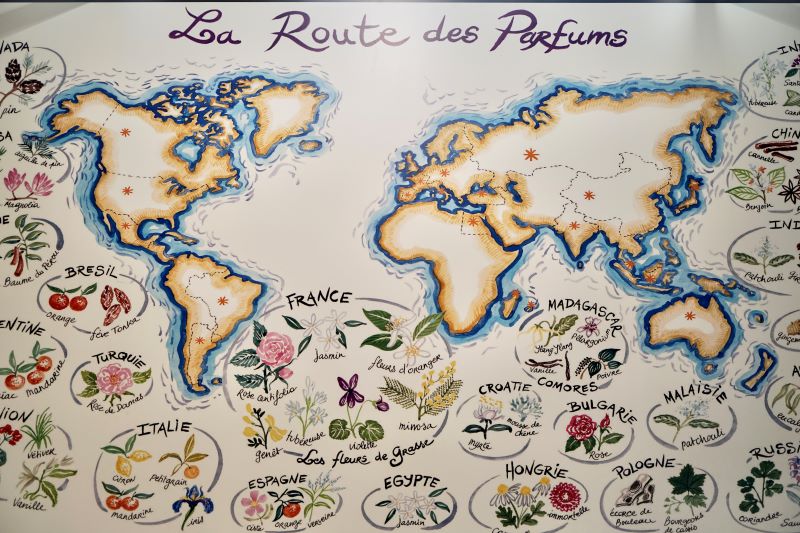 La Route des Parfums
NADA
pin
aiguille de pin
Magnolia
Baume du Pérou
BRESIL
orange
fève Tonka
ENTINE
mandarine
TURQUIE
Rose de Damas
NION
Vétiver
Vanille
ITALIE
citron
petitgrain
mandarine
iris
FRANCE
Rose centifolia
Jasmin
fleurs d'oranger
genêt
tubéreuse
violette
mimosa
Les fleurs de Grasse
ESPAGNE
ciste
orange
verveine
EGYPTE
Jasmin
MADAGASCAR
Ylang Ylang
géranium
Vanille
Poivre
COMORES
CROATIE
myrte
mousse de chêne
BULGARIE
Rose
MALAISIE
patchouli
HONGRIE
immortelle
POLOGNE
écorce de
Bouleau
Bourgeons
de cassis
IN
tubéreuse
CHIN
cannelle
Benjoin
IND
patchouli
RUSSI
coriandre